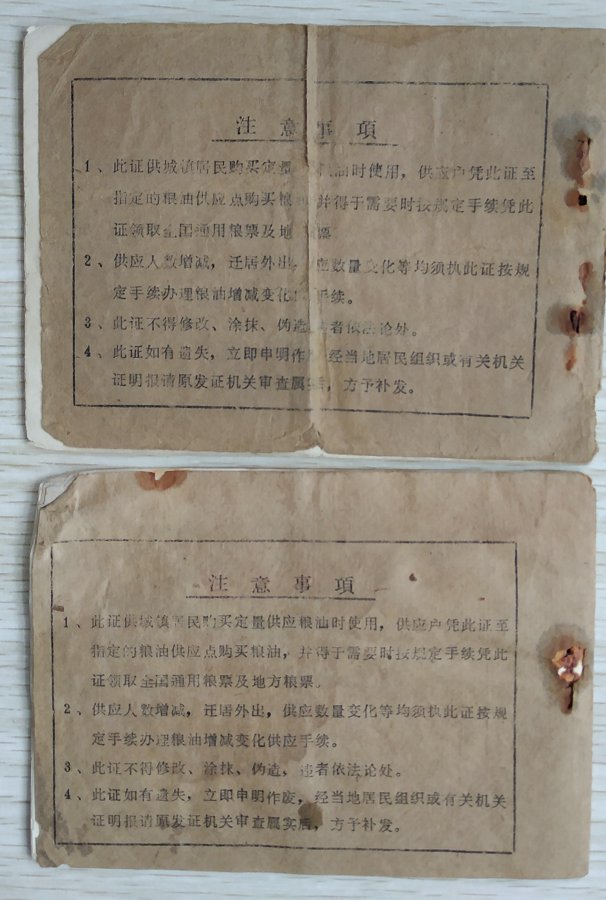 注意事項
1、此证供城镇居民购买定量 油时使用，供应户凭此证至
指定的粮油供应点购买粮 并得于需要时按规定手续凭此
证领取全国通用粮票及地 票
2、供应人数增减，迁居外出， 应数量变化等均须执此证按规
定手续办理粮油增减变化 手续。
3、此证不得修改、涂抹、伪造 者依法论处。
4、此证如有遗失，立即申明作 经当地居民组织或有关机关
证明报请原发证机关审查属实后，方予补发。
注意事項
1、此证供城镇居民购买定量供应粮油时使用，供应户凭此证至
指定的粮油供应点购买粮油，并得于需要时按规定手续凭此
证领取全国通用粮票及地方粮票。
2、供应人数增减，迁居外出，供应数量变化等均须执此证按规
定手续办理粮油增减变化供应手续。
3、此证不得修改、涂抹、伪造，违者依法论处。
4、此证如有遗失，立即申明作废，经当地居民组织或有关机关
证明报请原发证机关审查属实后，方予补发。